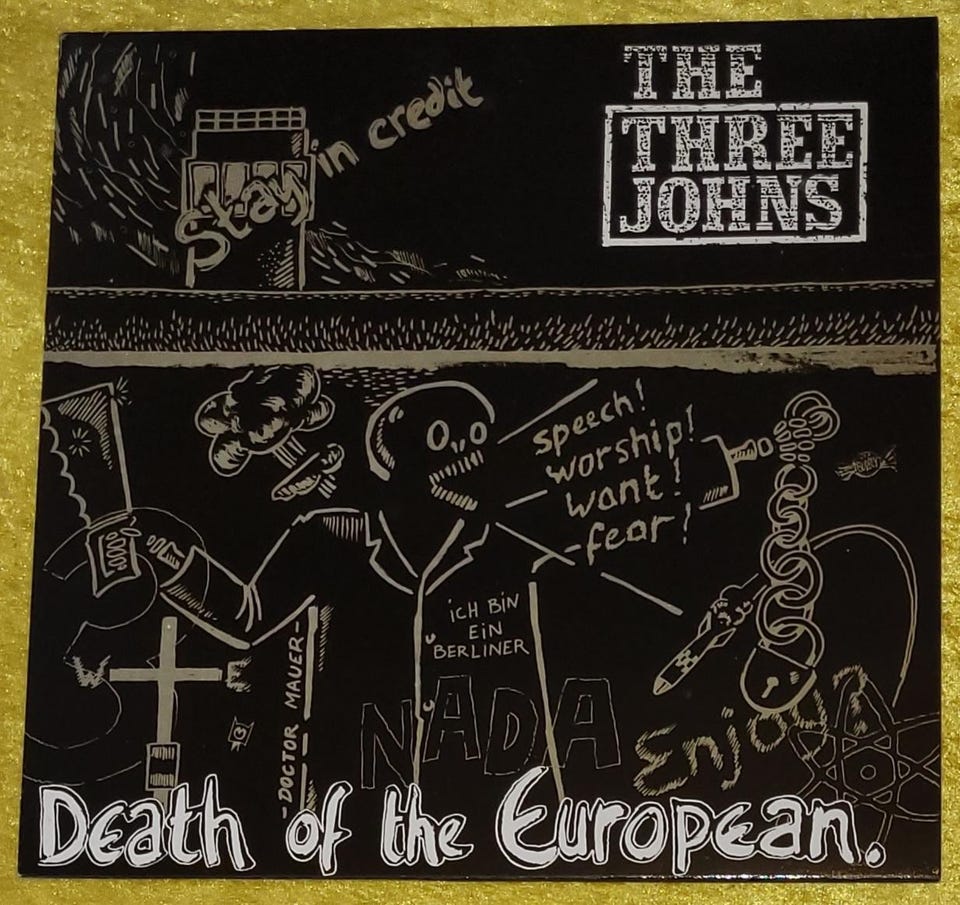 THE
THREE
JOHNS
Stay in credit
speech!
worship!
want!
fear!
iCH BiN
EiN
BERLINER
W E
-DOCTOR MAUER-
NADA
Enjoy
Death of the European.